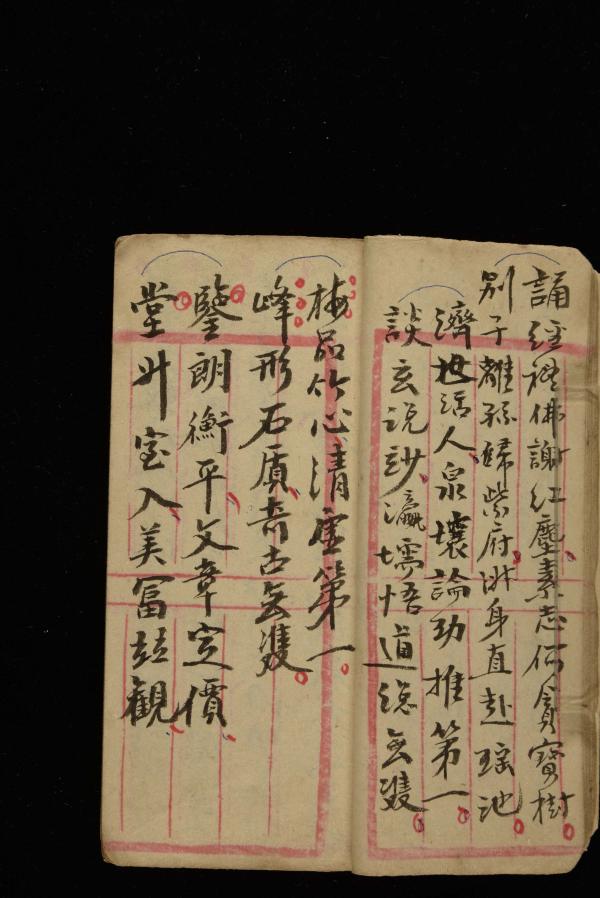 誦經礼佛謝紅塵素志何貪寶樹
別子離孫歸紫府淨身直赴瑶池
濟世活人泉壤論功推第一
談玄说妙瀛壖悟道總無雙
梅品竹心清虚第一
峰形石質奇古無雙
鑒朗衡平文章定價
堂升室入美富競觀